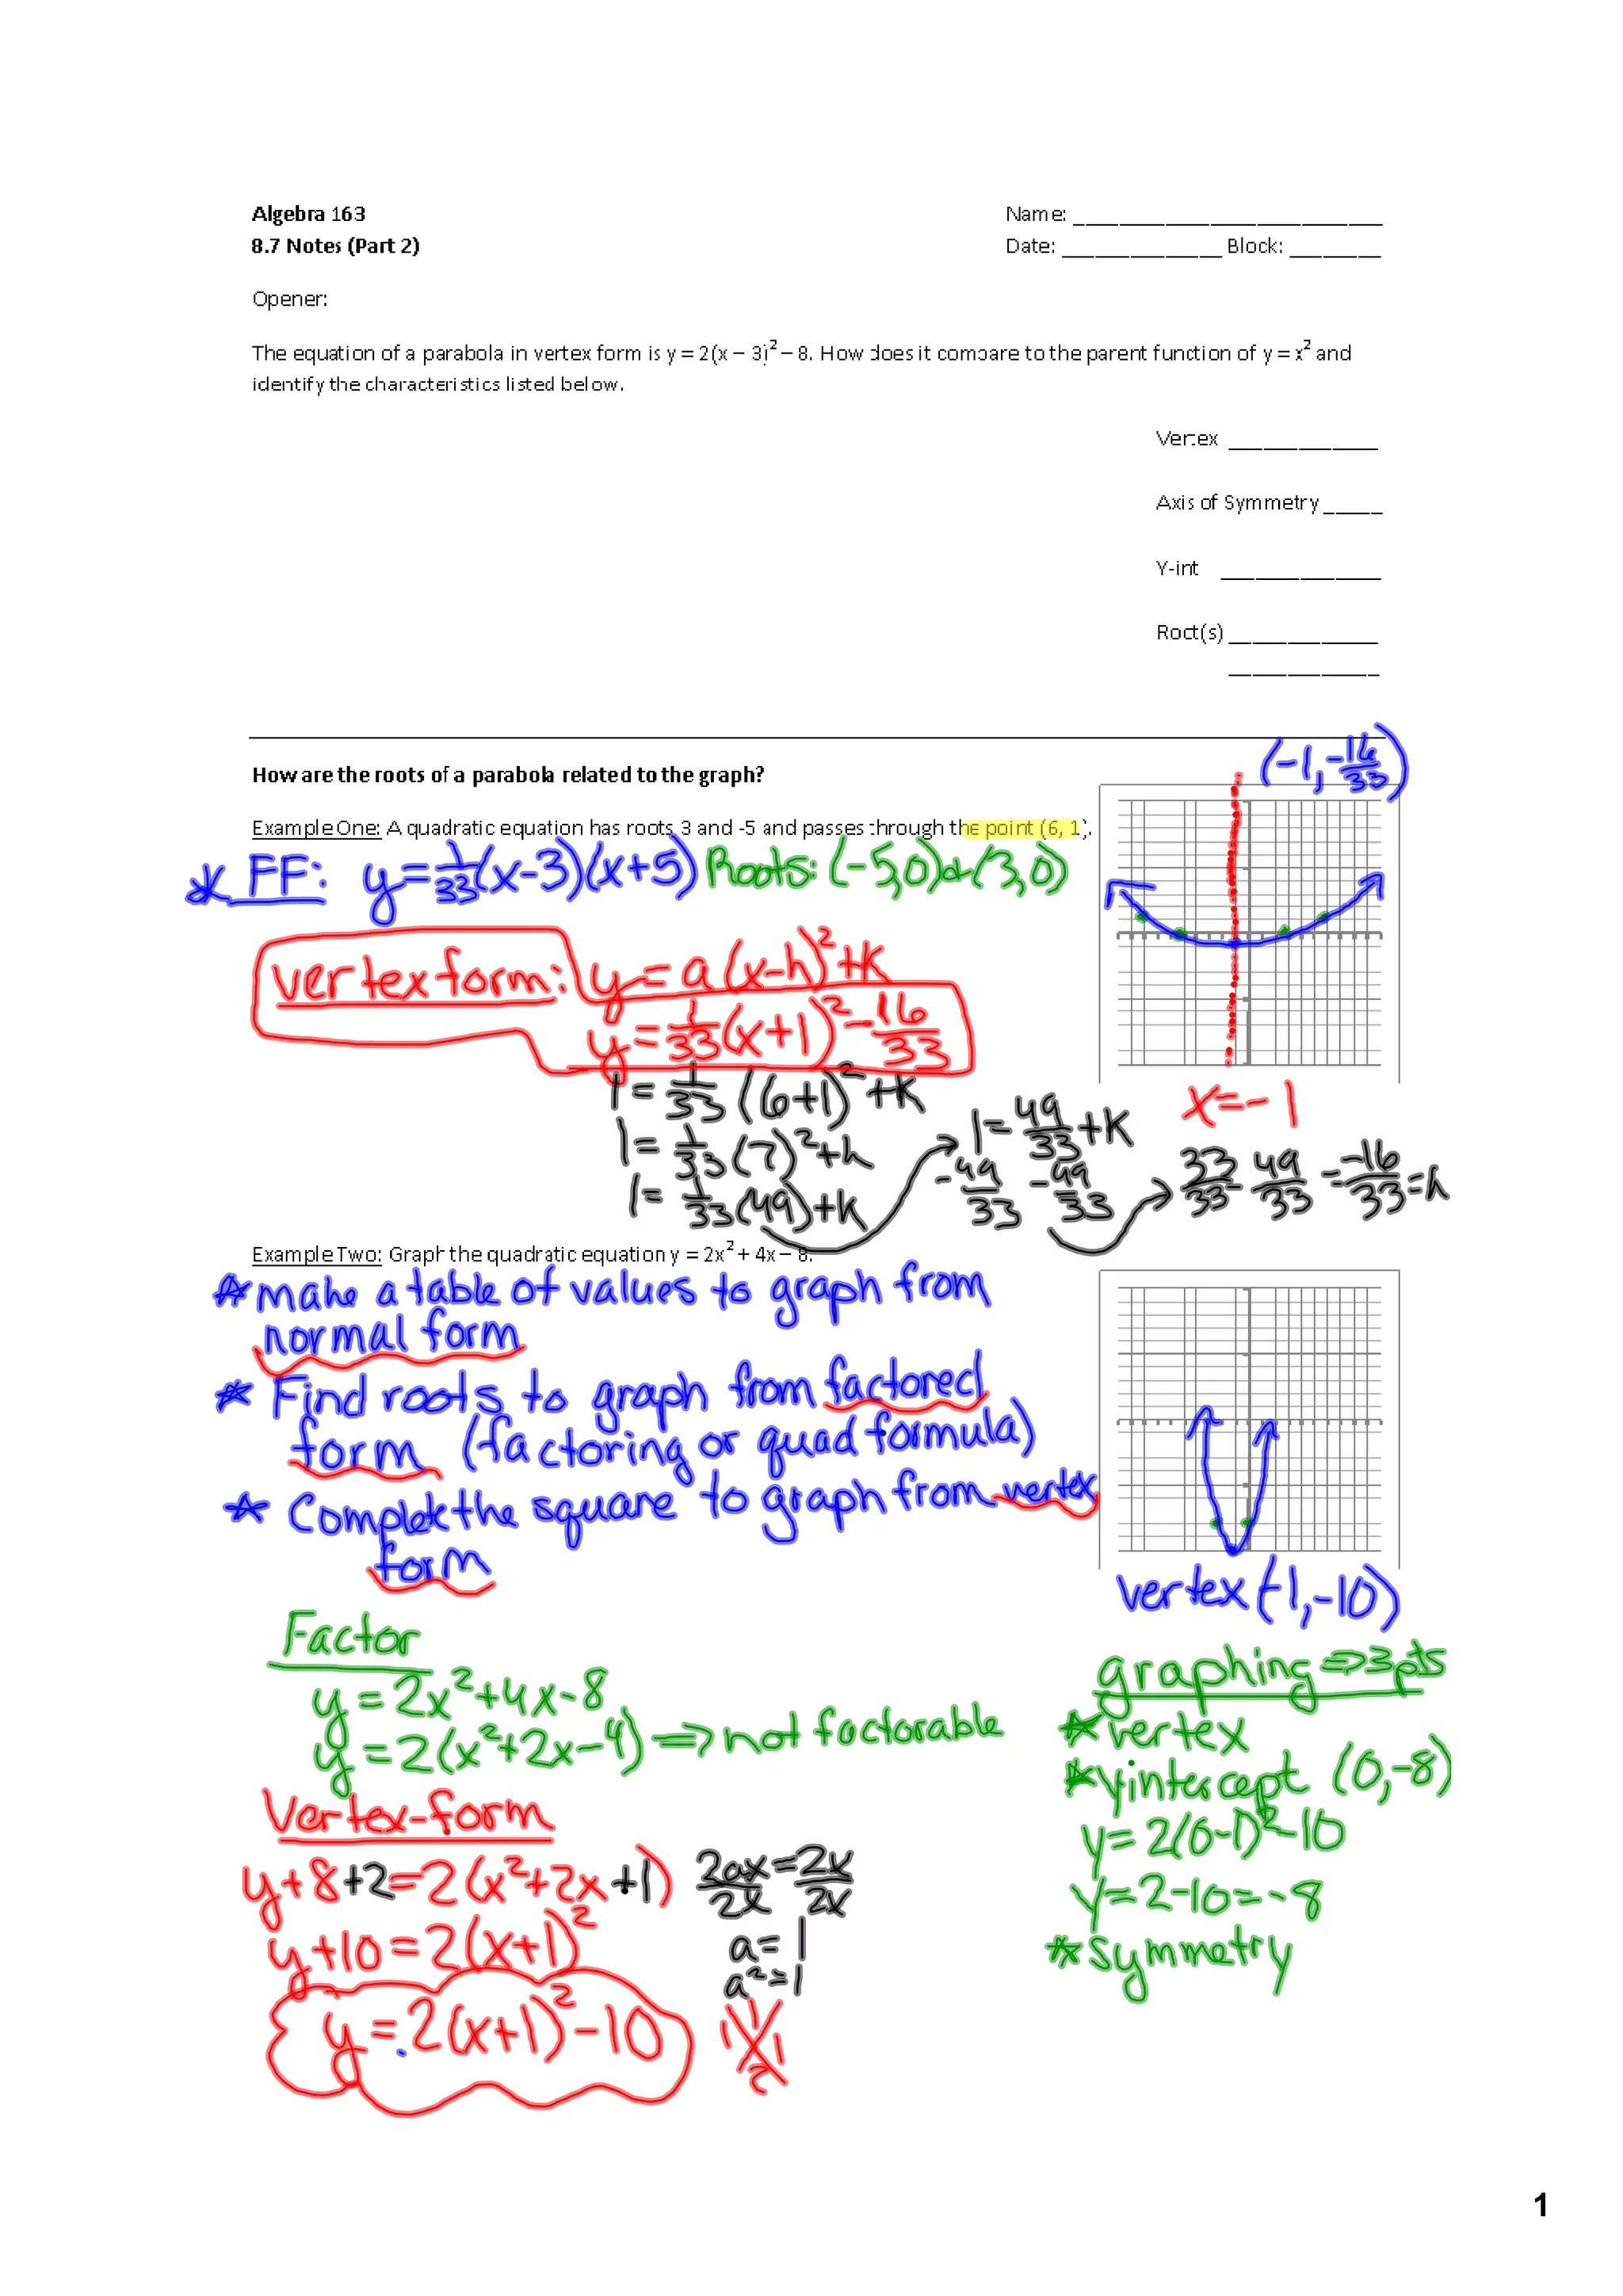 Algebra 163
Name: ____________________
8.7 Notes (Part 2)
Date: ______________ Block: ________
Opener:
The equation of a parabola in vertex form is y = 2(x – 3)² – 8. How does it compare to the parent function of y = x² and
identify the characteristics listed below.
Vertex _____________
Axis of Symmetry _____
Y-int ______________
Root(s) _____________
_____________
(-1, -16/33)
How are the roots of a parabola related to the graph?
Example One: A quadratic equation has roots 3 and -5 and passes through the point (6, 1).
* FF: y = 1/33(x-3)(x+5) Roots: (-5,0) & (3,0)
vertex form: y = a(x-h)²+k
y = 1/33(x+1)² - 16/33
1 = 1/33(6+1)²+k
x = -1
1 = 1/33(7)²+k
1 = 49/33 + k
-49/33 -49/33
33/33 - 49/33 = -16/33 = k
1 = 1/33(49)+k
Example Two: Graph the quadratic equation y = 2x² + 4x – 8.
* make a table of values to graph from
normal form
* Find roots to graph from factored
form (factoring or quad formula)
* Complete the square to graph from vertex
form
vertex (-1,-10)
Factor
y = 2x²+4x-8
y = 2(x²+2x-4) => not factorable
graphing => 3pts
* vertex
* y intercept (0,-8)
y = 2(0-1)²-10
y = 2-10 = -8
* symmetry
Vertex-form
y+8+2 = 2(x²+2x+1)
y+10 = 2(x+1)²
y = 2(x+1)²-10
2ax = 2x
2x 2x
a = 1
a² = 1
1
1 1
2
1